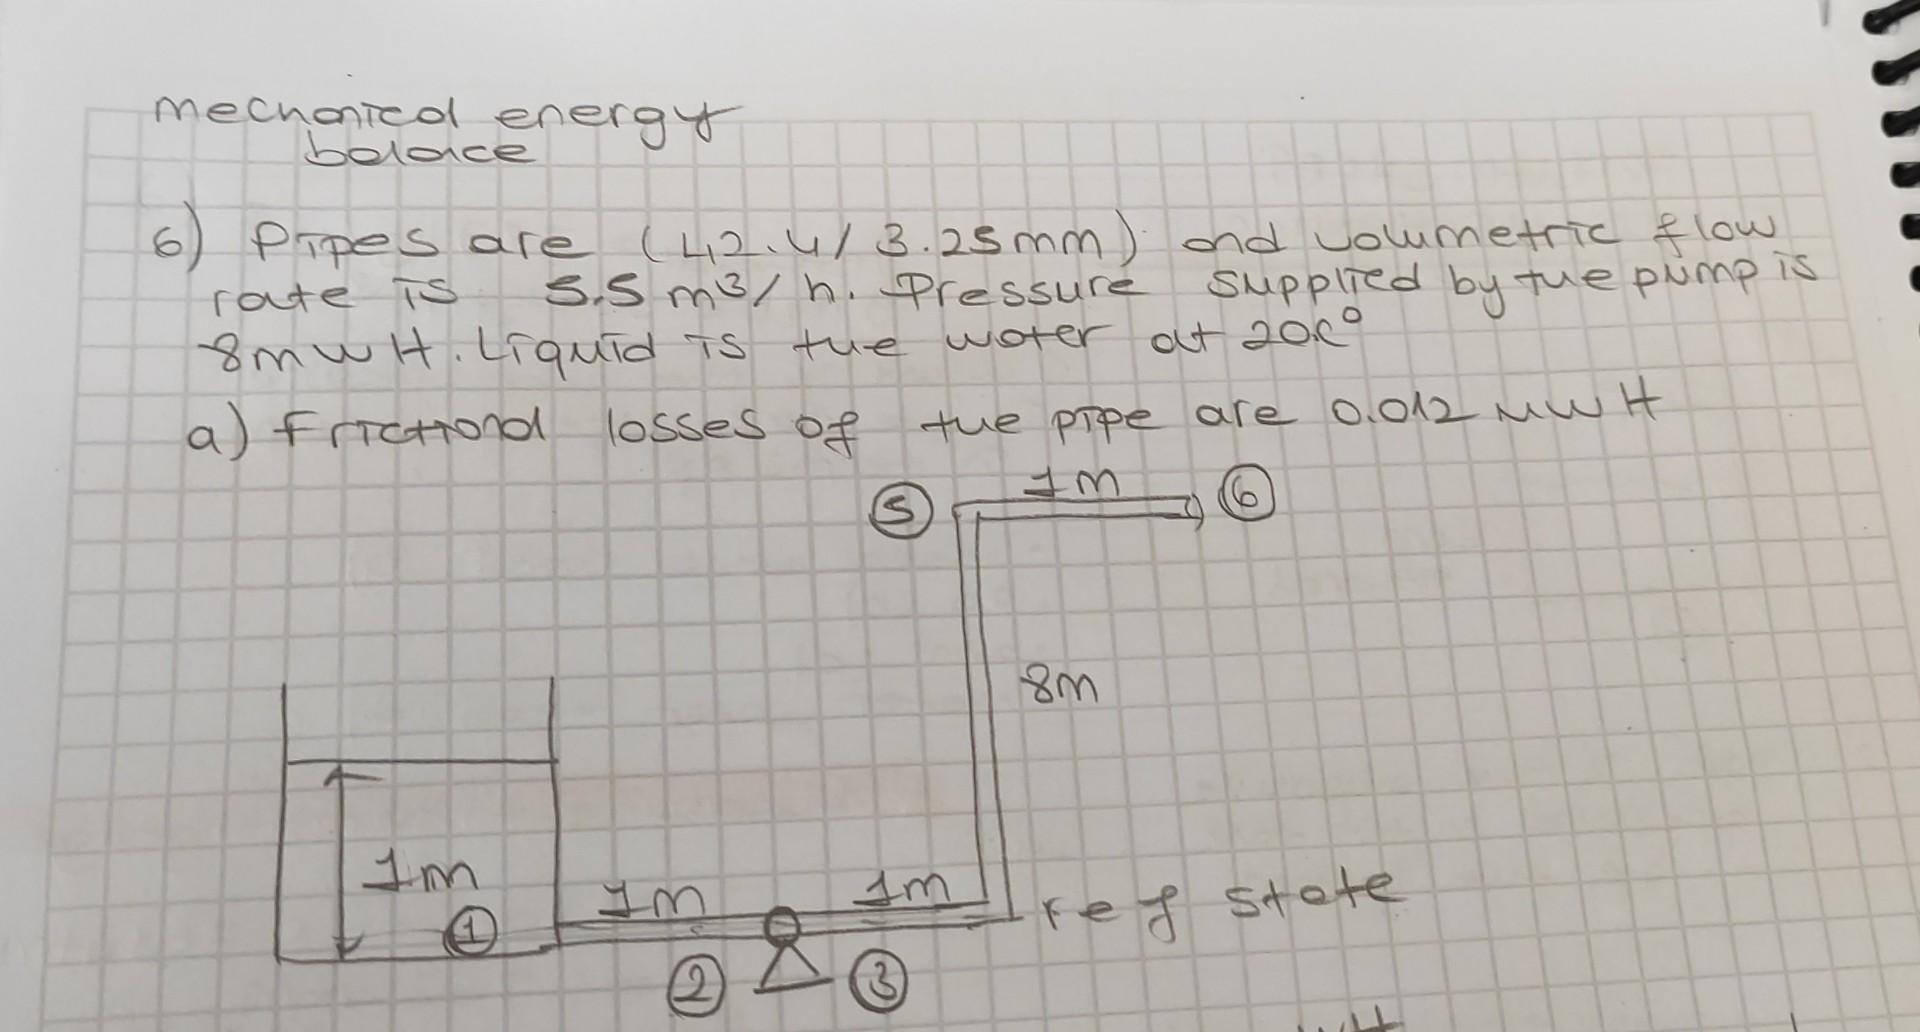 mechanical energy
balace
6) Pipes are (42.4/ 3.25mm) and volumetric flow
rate is 5.5 m³/h. Pressure supplied by the pump is
8mwH. Liquid is the water at 20c°
a) Frictional losses of the pipe are 0.012 mwH
5
1m
6
8m
1m
1m
1m
1
ref state
2
3
wH